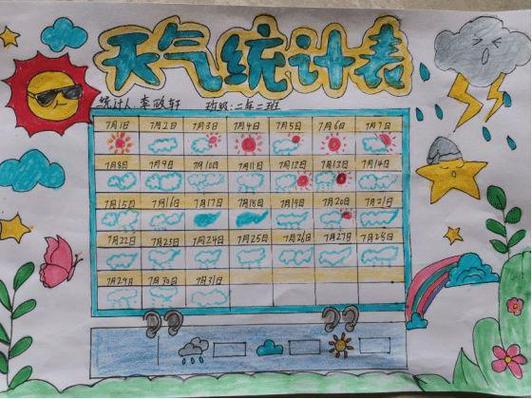 天气统计表
统计人：李政轩 班级：二年二班
7月1日 7月2日 7月3日 7月4日 7月5日 7月6日 7月7日
7月8日 7月9日 7月10日 7月11日 7月12日 7月13日 7月14日
7月15日 7月16日 7月17日 7月18日 7月19日 7月20日 7月21日
7月22日 7月23日 7月24日 7月25日 7月26日 7月27日 7月28日
7月29日 7月30日 7月31日